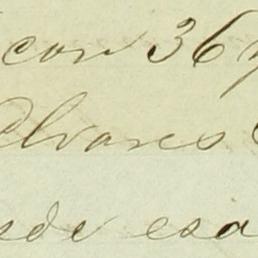 con 36
Alvares
esa